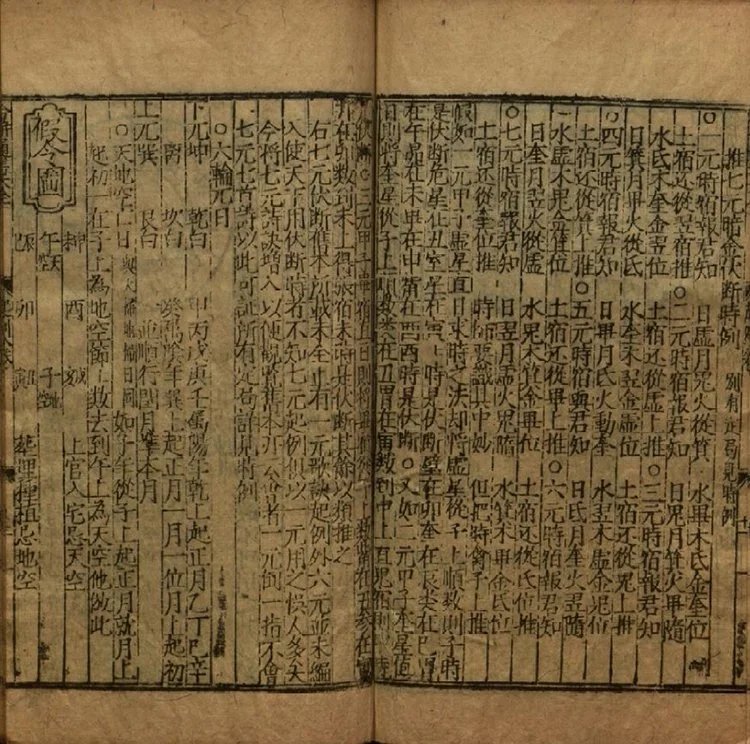 推七元時禽伏斷時例 別有定局見時例
○一元時宿報君知 日虛月鬼火從箕 水畢木氐金奎位
土宿还從翌宿推○二元時宿報君知 日鬼月箕火畢隨
水氐木奎金翌位 土宿还從虛上推○三元時宿報君知
日箕月畢火從氐 水奎木翌金虛位 土宿还從鬼上推
○四元時宿報君知 日畢月氐火動奎 水翌木虛金鬼位
土宿还從箕上推○五元時宿與君知 日氐月奎火翌隨
水虛木鬼金箕位 土宿还從畢上推○六元時宿報君知
日奎月翌火從虛 水鬼木箕金畢位 土宿还從氐位推
○七元時宿報君知 日翌月虛火鬼隨 水箕木畢金氐位
土宿还從奎位推 時師要識其中妙 但把時禽子上推
假如一元甲子虛星值日求時之法却將虛星從子上順數則子時
是伏断危星在丑室星在寅上時是伏断壁在卯奎在辰婁在巳胃
在午昴在未畢在申觜在酉酉時是伏断○又如二元甲子奎星值
日則將奎星從子上順數婁在丑胃在寅數到申上是鬼宿則申時
伏断○三元甲子畢宿直日則
井在卯數到未上得張宿未時是伏断其餘以類推之
右七元伏断舊本所載未全止有一元歌訣起例外六元並未編
入使天下用伏断時者不知七元起例但以一元用之悞人多矣
今將七元詩訣增入以便觀覽舊本并云會者一元倒一指不會
七元七首詩以此可証所有定局詳見時例
○六輪元日
下元坤 乾白 甲丙戊庚壬為陽年乾上起正月乙丁己辛
離 坎白 癸為陰年巽上起正月一月一位月上起初
上元巽 艮白 一並順行閏月
○天地空亡日 如子年從子上起正月就月上
起初一在子上為地空節上數去到午上為天空他倣此
假令圖
午天空
酉
卯
子地空
上官入宅忌天空
埋種植忌地空